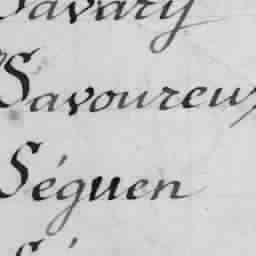 Savary
Savoureux
Séguen